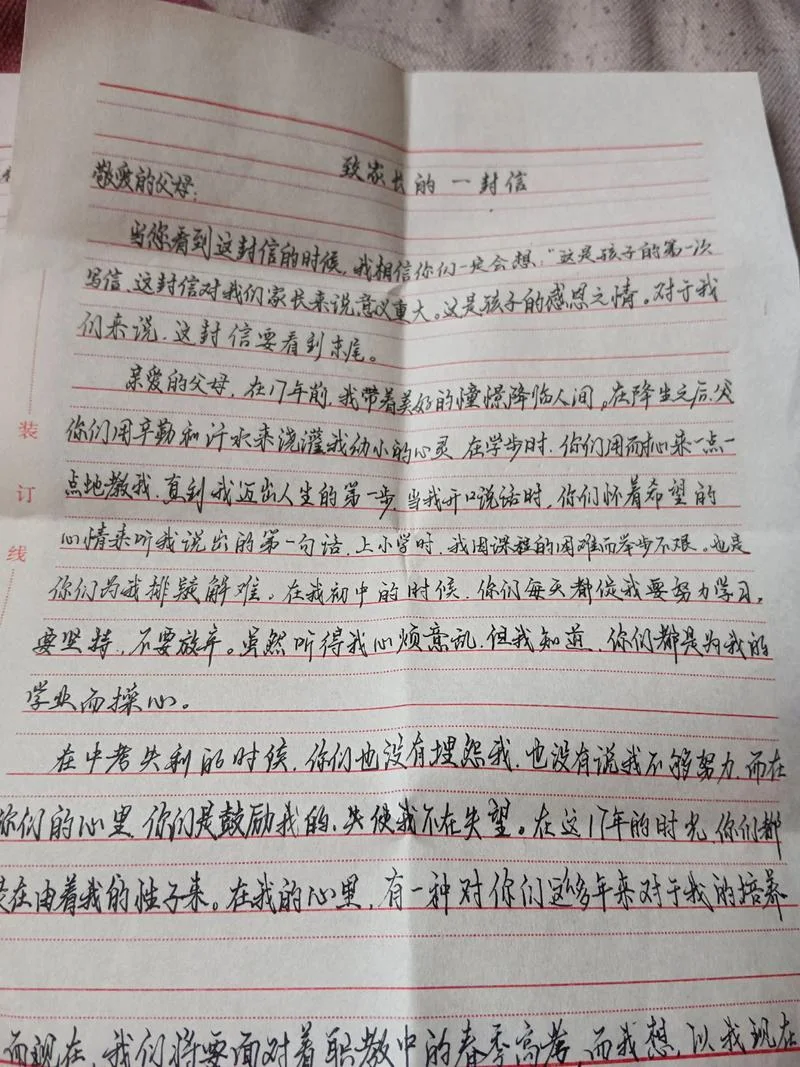 致家长的一封信
敬爱的父母：
当你看到这封信的时候，我相信你们一定会想，“这是孩子的第一次
写信、这封信对我们家长来说意议重大。这是孩子的感恩之情。对于我
们来说，这封信要看到末尾。
亲爱的父母，在17年前，我带着美好的憧憬降临人间。在降生之后，父
你们用辛勤和汗水来浇灌我幼小的心灵 在学步时，你们用耐心来一点一
点地教我，直到我迈出人生的第一步，当我开口说话时，你们怀着希望的
心情来听我说出的第一句话，上小学时，我因课程的困难而举步不艰。也是
你们为我排疑解难。在我初中的时候，你们每天都促我要努力学习，
要坚持，不要放弃。虽然听得我心烦意乱，但我知道，你们都是为我的
学业而操心。
在中考失利的时候，你们也没有埋怨我，也没有说我不够努力，而在
你们的心里，你们是鼓励我的，使我不在失望。在这17年的时光，你们都
是在由着我的性子来。在我的心里，有一种对你们这多年来对于我的培养
而现在，我们将要面对着职教中的春季高考，而我想，以我现在
装
订
线